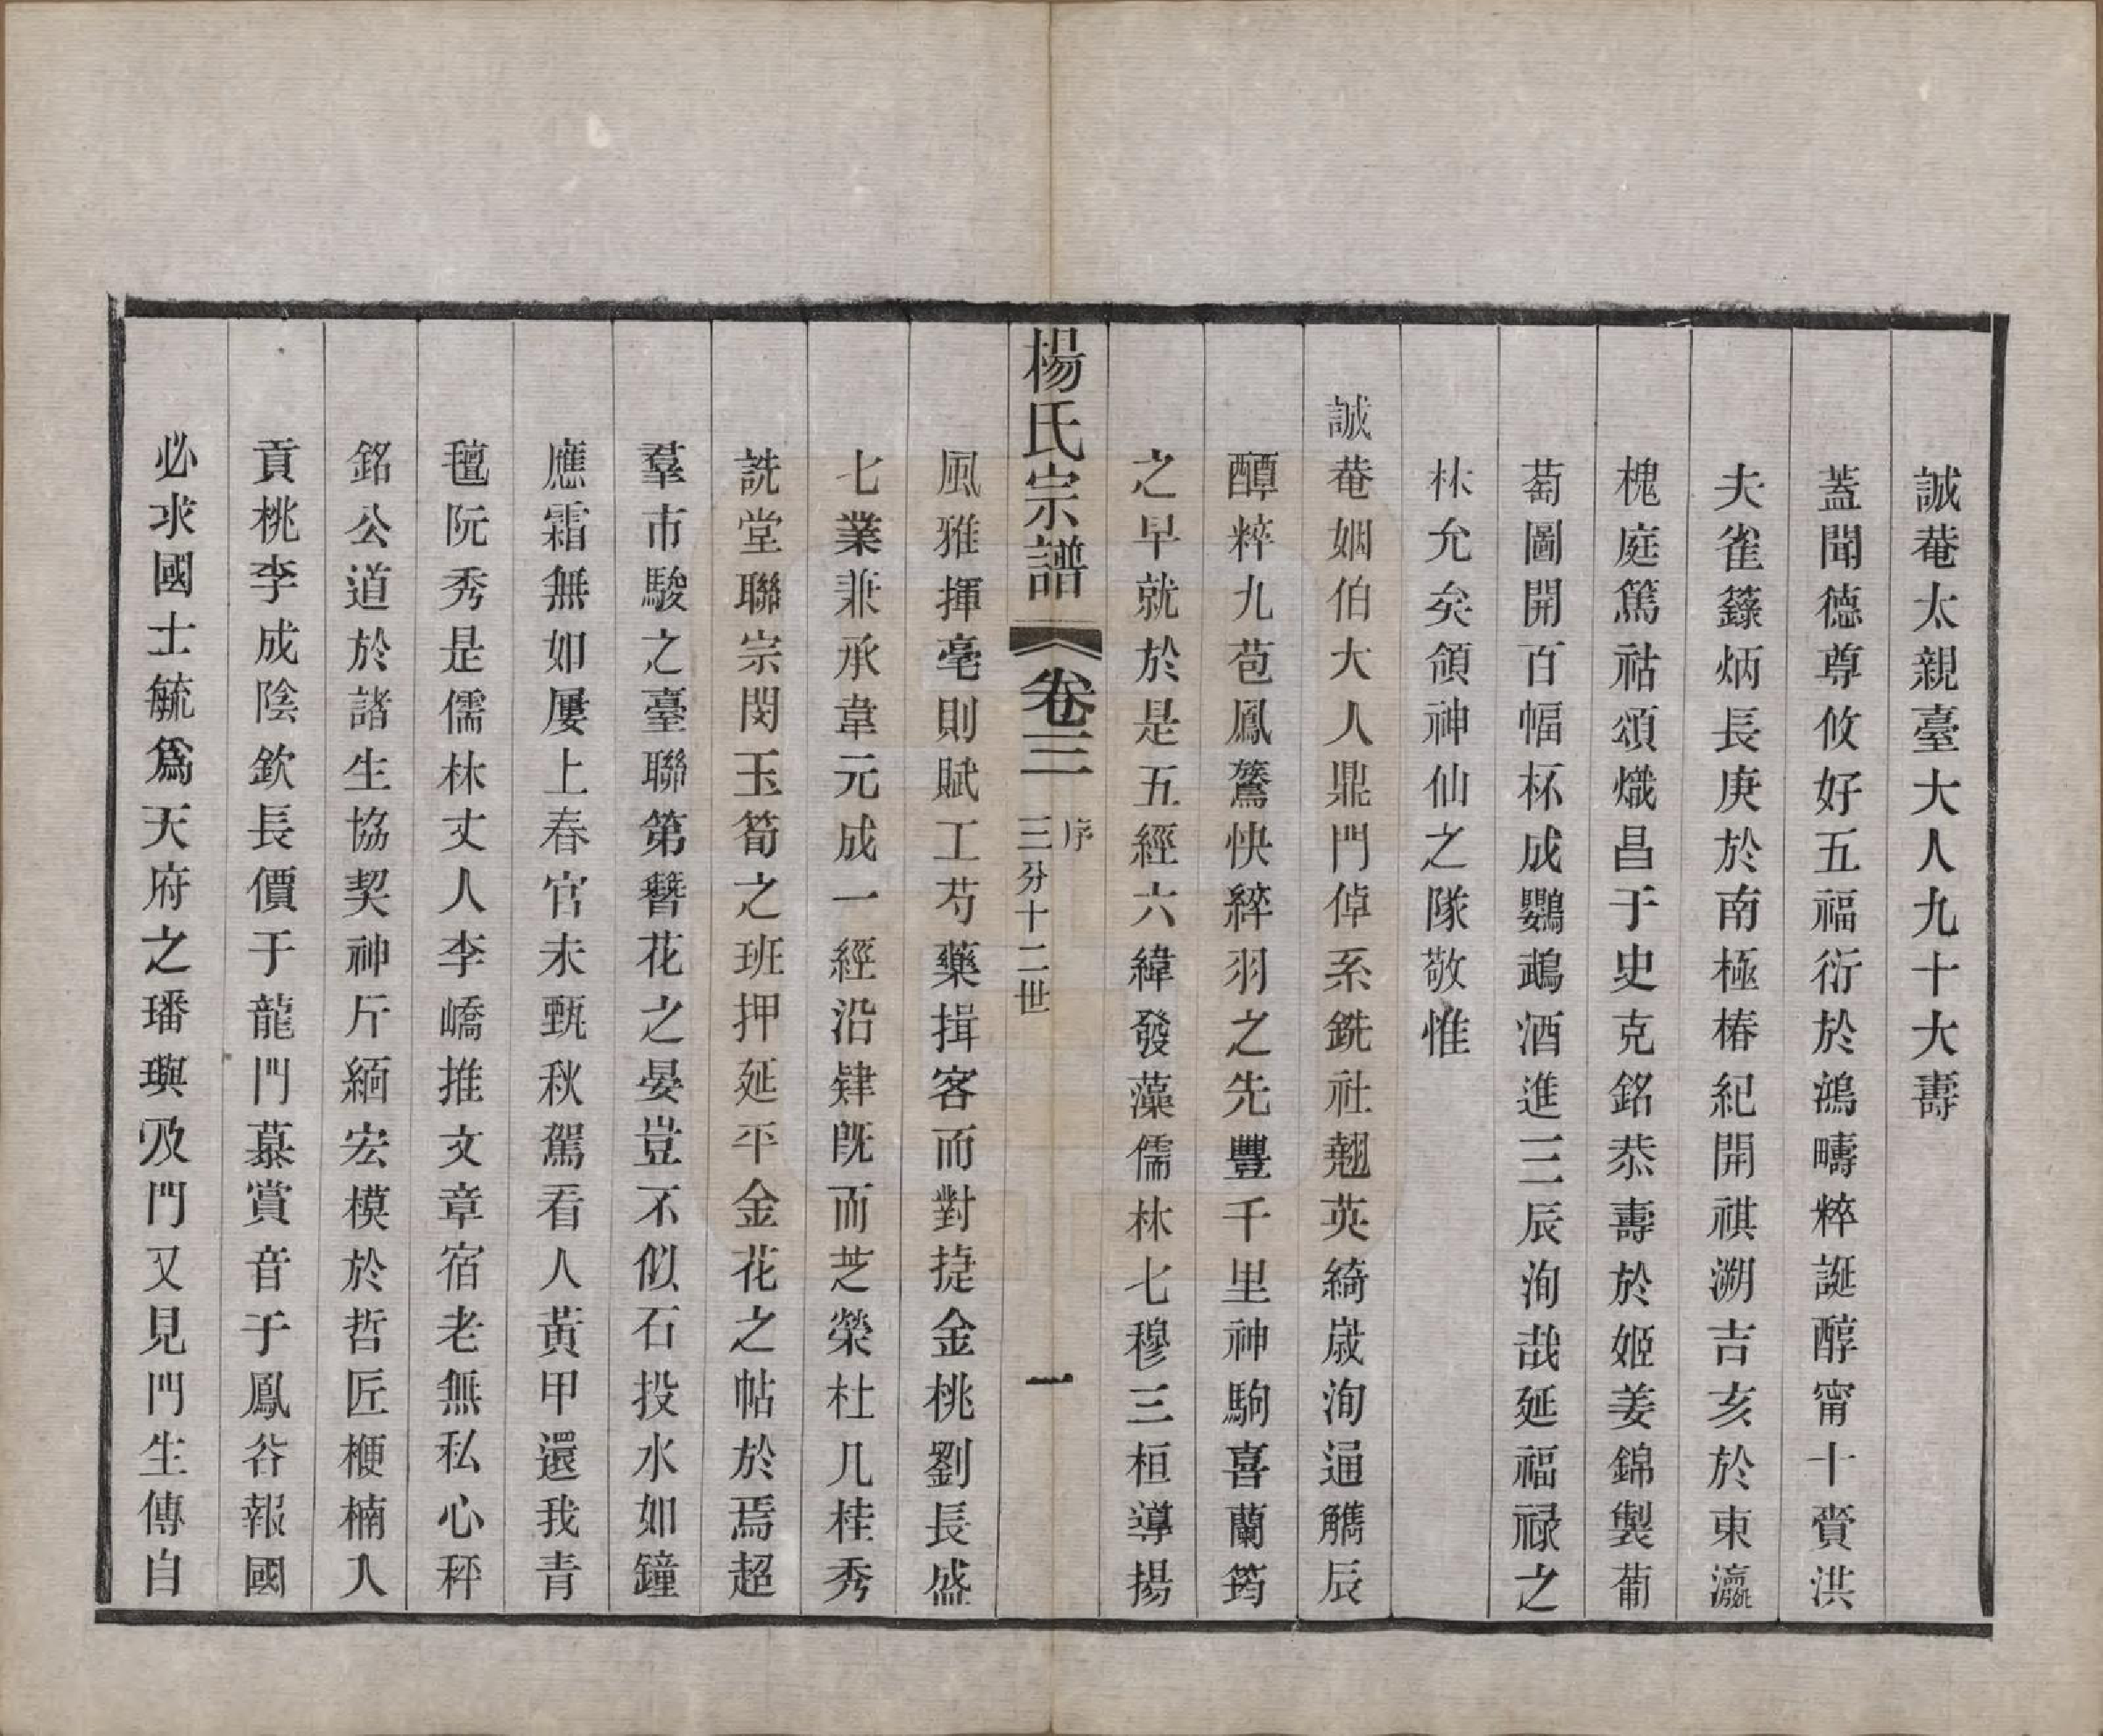 誠菴太親臺大人九十大壽
蓋聞德尊攸好五福衍於鴻疇粹誕醇甯十賚洪
夫雀籙炳長庚於南極椿紀開祺溯吉亥於東瀛
槐庭篤祜頌熾昌于史克銘恭壽於姬姜錦製葡
萄圖開百幅杯成鸚鵡酒進三辰洵哉延福祿之
林允矣領神仙之隊敬惟
誠菴姻伯大人鼎門倬系銑社翹英綺歲洵通觿辰
醰粹九苞鳳鶱快綷羽之先豐千里神駒喜蘭筠
之早就於是五經六緯發藻儒林七穆三桓導揚
楊氏宗譜 卷三 序 三分十二世 一
風雅揮毫則賦工芍藥揖客而對捷金桃劉長盛
七業兼承韋元成一經沿肄旣而芝榮杜几桂秀
詵堂聯宗閔玉筍之班押延平金花之帖於焉超
羣市駿之臺聯第簪花之晏豈不似石投水如鐘
應霜無如屢上春官未甄秋駕看人黃甲還我青
氊阮秀是儒林丈人李嶠推文章宿老無私心秤
銘公道於諸生協契神斤緬宏模於哲匠楩楠入
貢桃李成陰欽長價于龍門慕賞音于鳳谷報國
必求國士毓爲天府之璠璵及門又見門生傳自